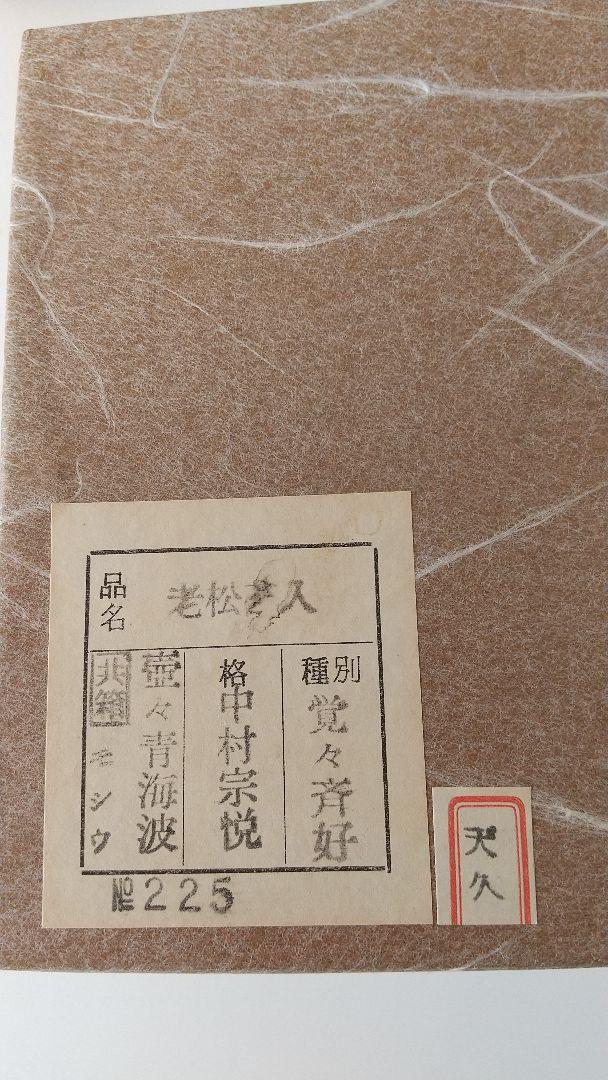 品名
老松茶入
種別
覚々斉好
格
中村宗悦
壺々青海波
共箱
モシウ
№225
天久